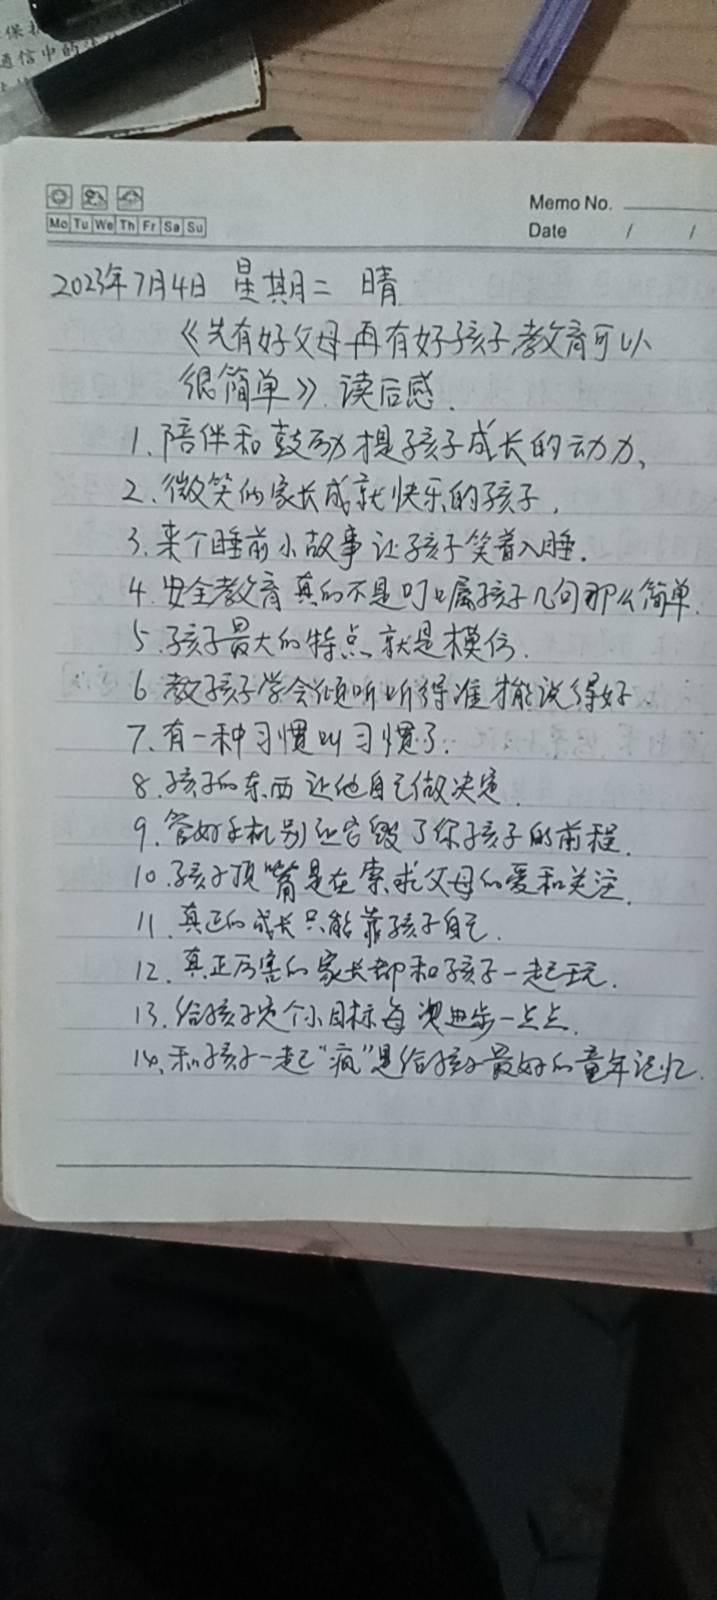 保
通信中的
Mo Tu We Th Fr Sa Su
Memo No.
Date / /
2023年7月4日 星期二 晴
《先有好父母再有好孩子教育可以
很简单》读后感.
1.陪伴和鼓励才是孩子成长的动力、
2.微笑的家长成就快乐的孩子.
3.来个睡前小故事让孩子笑着入睡.
4.安全教育真的不是叮嘱孩子几句那么简单.
5.孩子最大的特点就是模仿.
6.教孩子学会倾听听得准才能说得好.
7.有一种习惯叫习惯了.
8.孩子的东西让他自己做决定.
9.管好手机别让它毁了你孩子的前程.
10.孩子顶嘴是在索求父母的爱和关注.
11.真正的成长只能靠孩子自己.
12.真正厉害的家长都和孩子一起玩.
13.给孩子定个小目标每次进步一点点.
14.和孩子一起“疯”是给孩子最好的童年记忆.